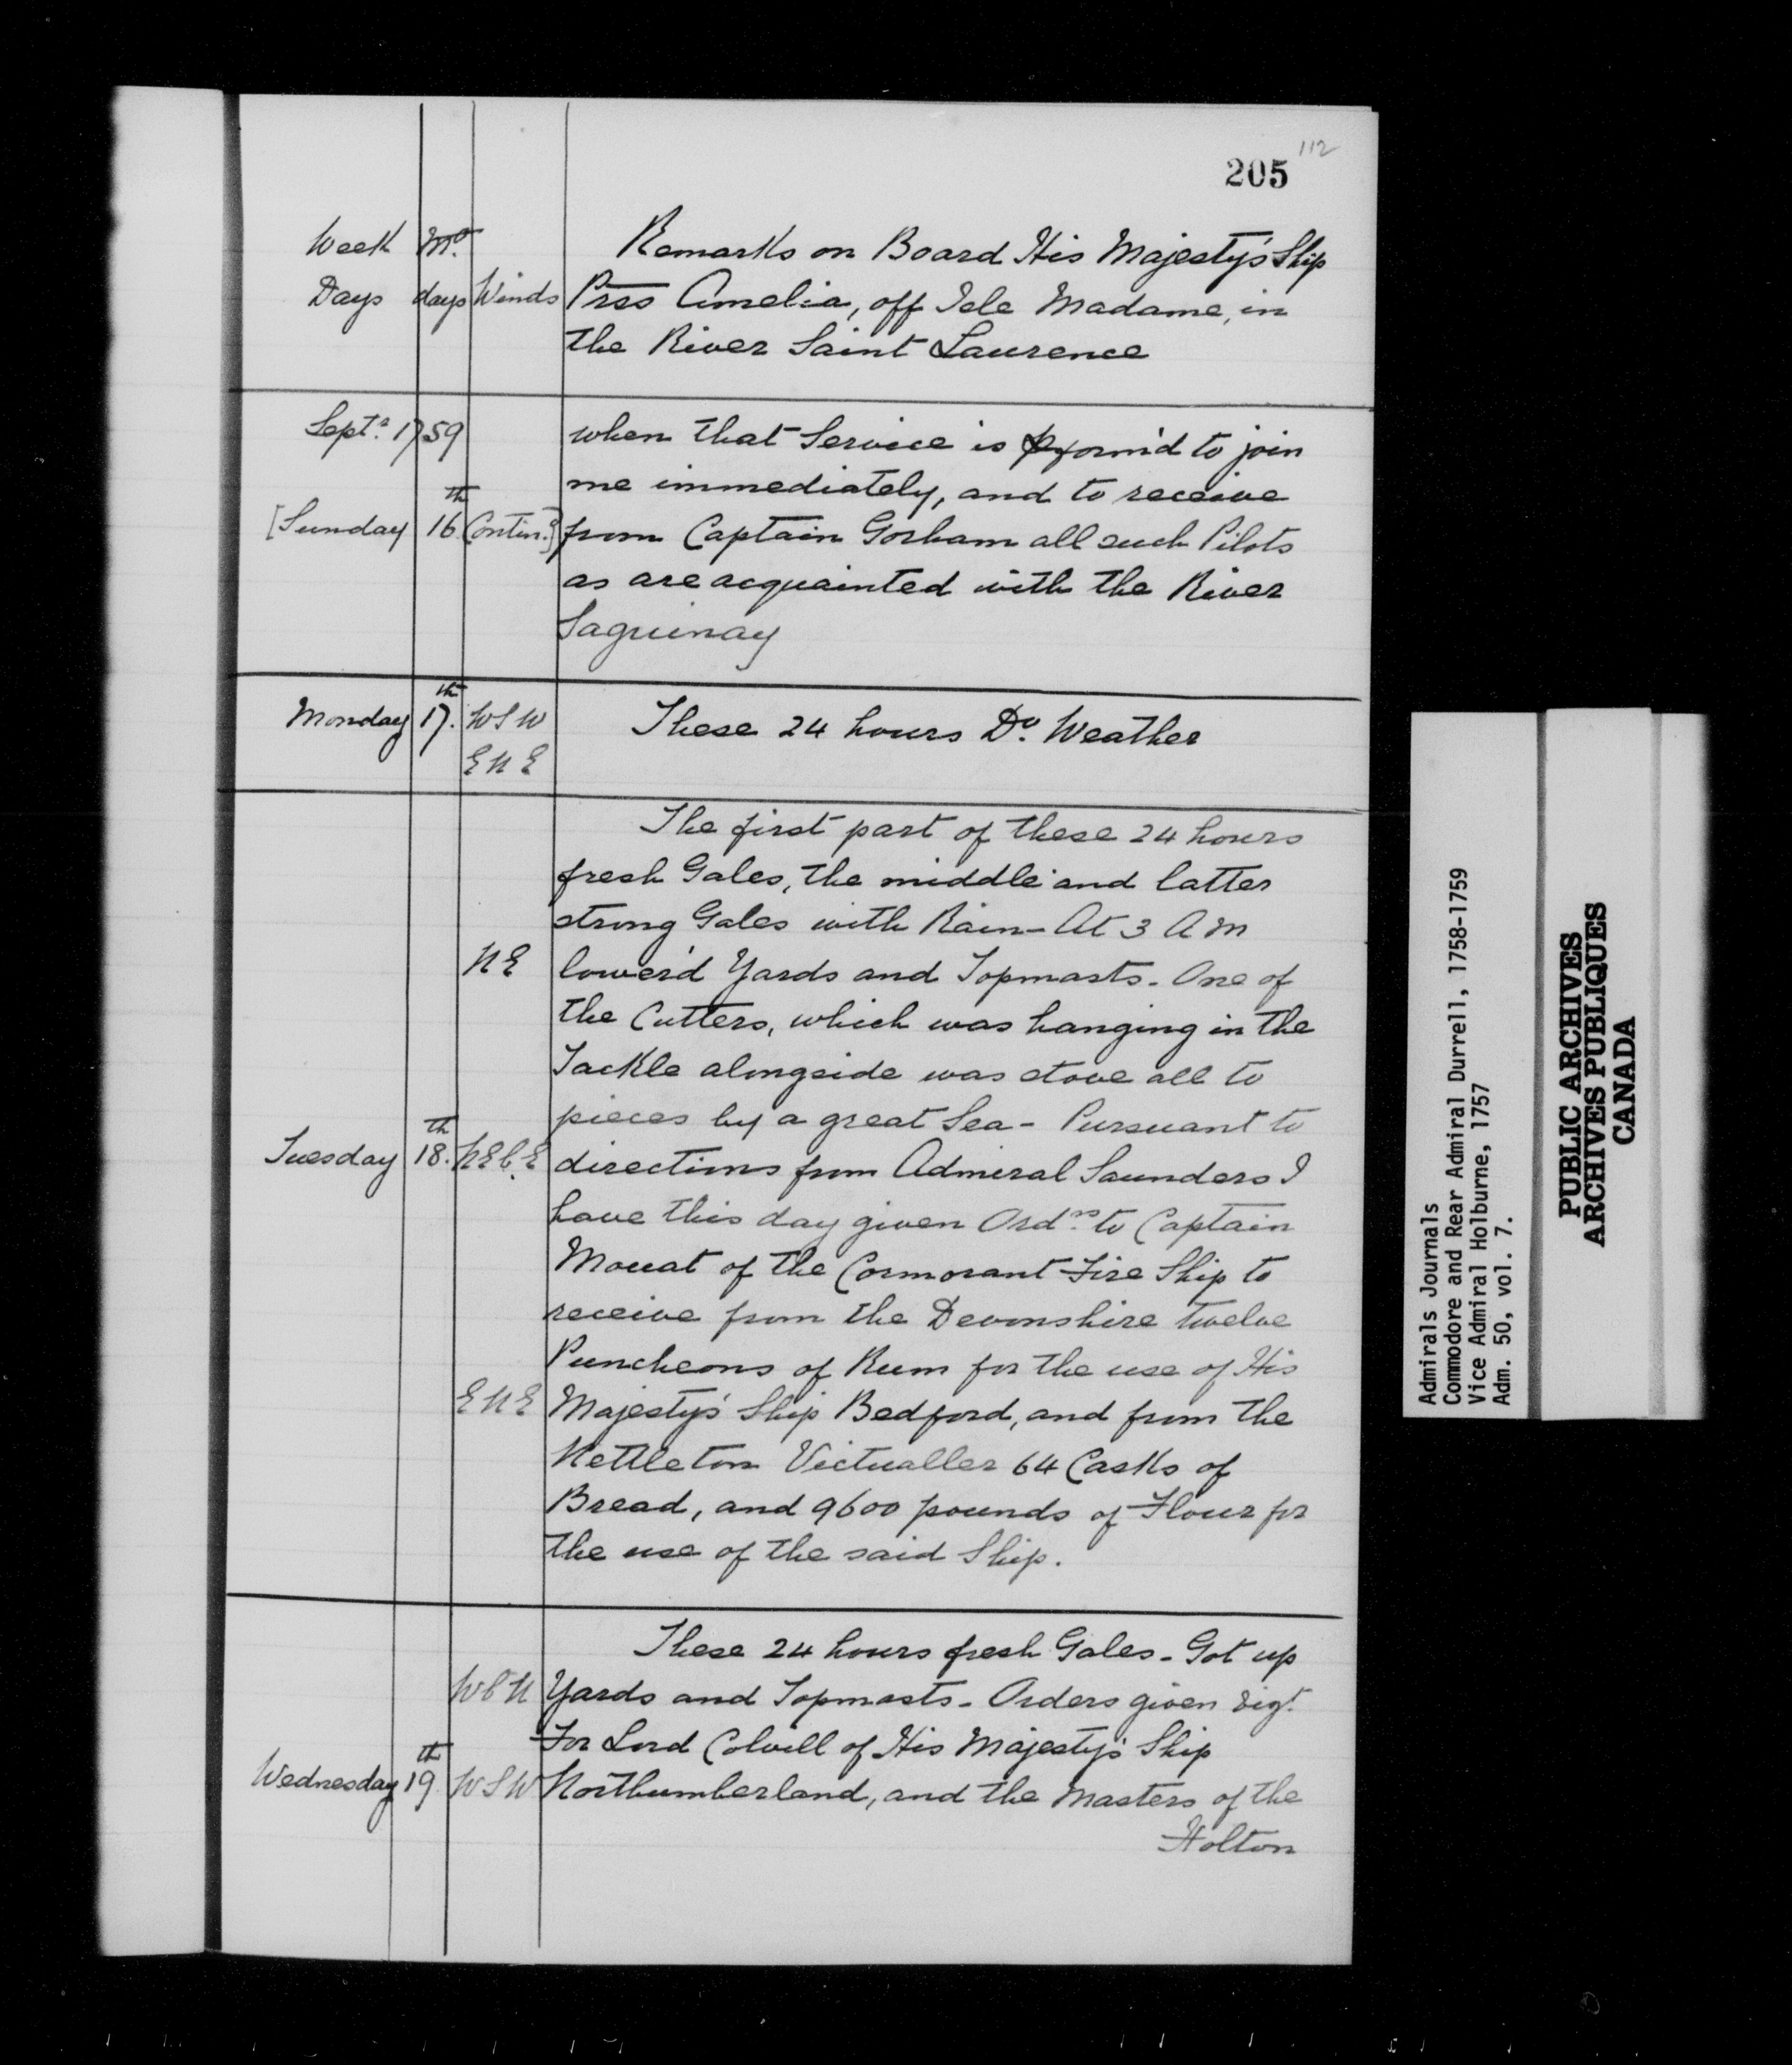 205 112
Week Mo. Remarks on Board His Majesty's Ship
Days days Winds Prss Amelia, off Isle Madame, in
the River Saint Laurence
Septr. 1759 when that Service is pform'd to join
me immediately, and to receive
[Sunday 16th Contind.] from Captain Gorham all such Pilots
as are acquainted with the River
Saguinay
Monday 17th. WSW These 24 hours Do. Weather
ENE
The first part of these 24 hours
fresh Gales, the middle and latter
strong Gales with Rain - At 3 AM
NE lower'd Yards and Topmasts. One of
the Cutters, which was hanging in the
Tackle alongside was stove all to
pieces by a great Sea - Pursuant to
Tuesday 18th. NEb.E directions from Admiral Saunders I
have this day given Ordrs. to Captain
Mouat of the Cormorant Fire Ship to
receive from the Devonshire twelve
Puncheons of Rum for the use of His
ENE Majesty's Ship Bedford, and from the
Nettleton Victualler 64 Casks of
Bread, and 9600 pounds of Flour for
the use of the said Ship.
These 24 hours fresh Gales - Got up
WbN Yards and Topmasts - Orders given vizt.
For Lord Colvill of His Majesty's Ship
Wednesday 19th WSW Northumberland, and the Masters of the
Holton
Admirals Journals
Commodore and Rear Admiral Durrell, 1758-1759
Vice Admiral Holburne, 1757
Adm. 50, vol. 7.
PUBLIC ARCHIVES
ARCHIVES PUBLIQUES
CANADA